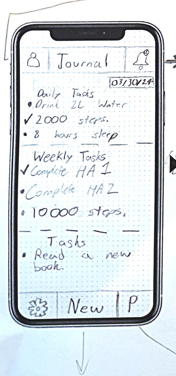 Journal
03/30/24
Daily Tasks
• Drink 2L Water
✓ 2000 steps.
• 8 hours sleep
Weekly Tasks
✓ Complete HA 1
• Complete HA2
• 10000 steps.
Tasks
• Read a new
book.
New P